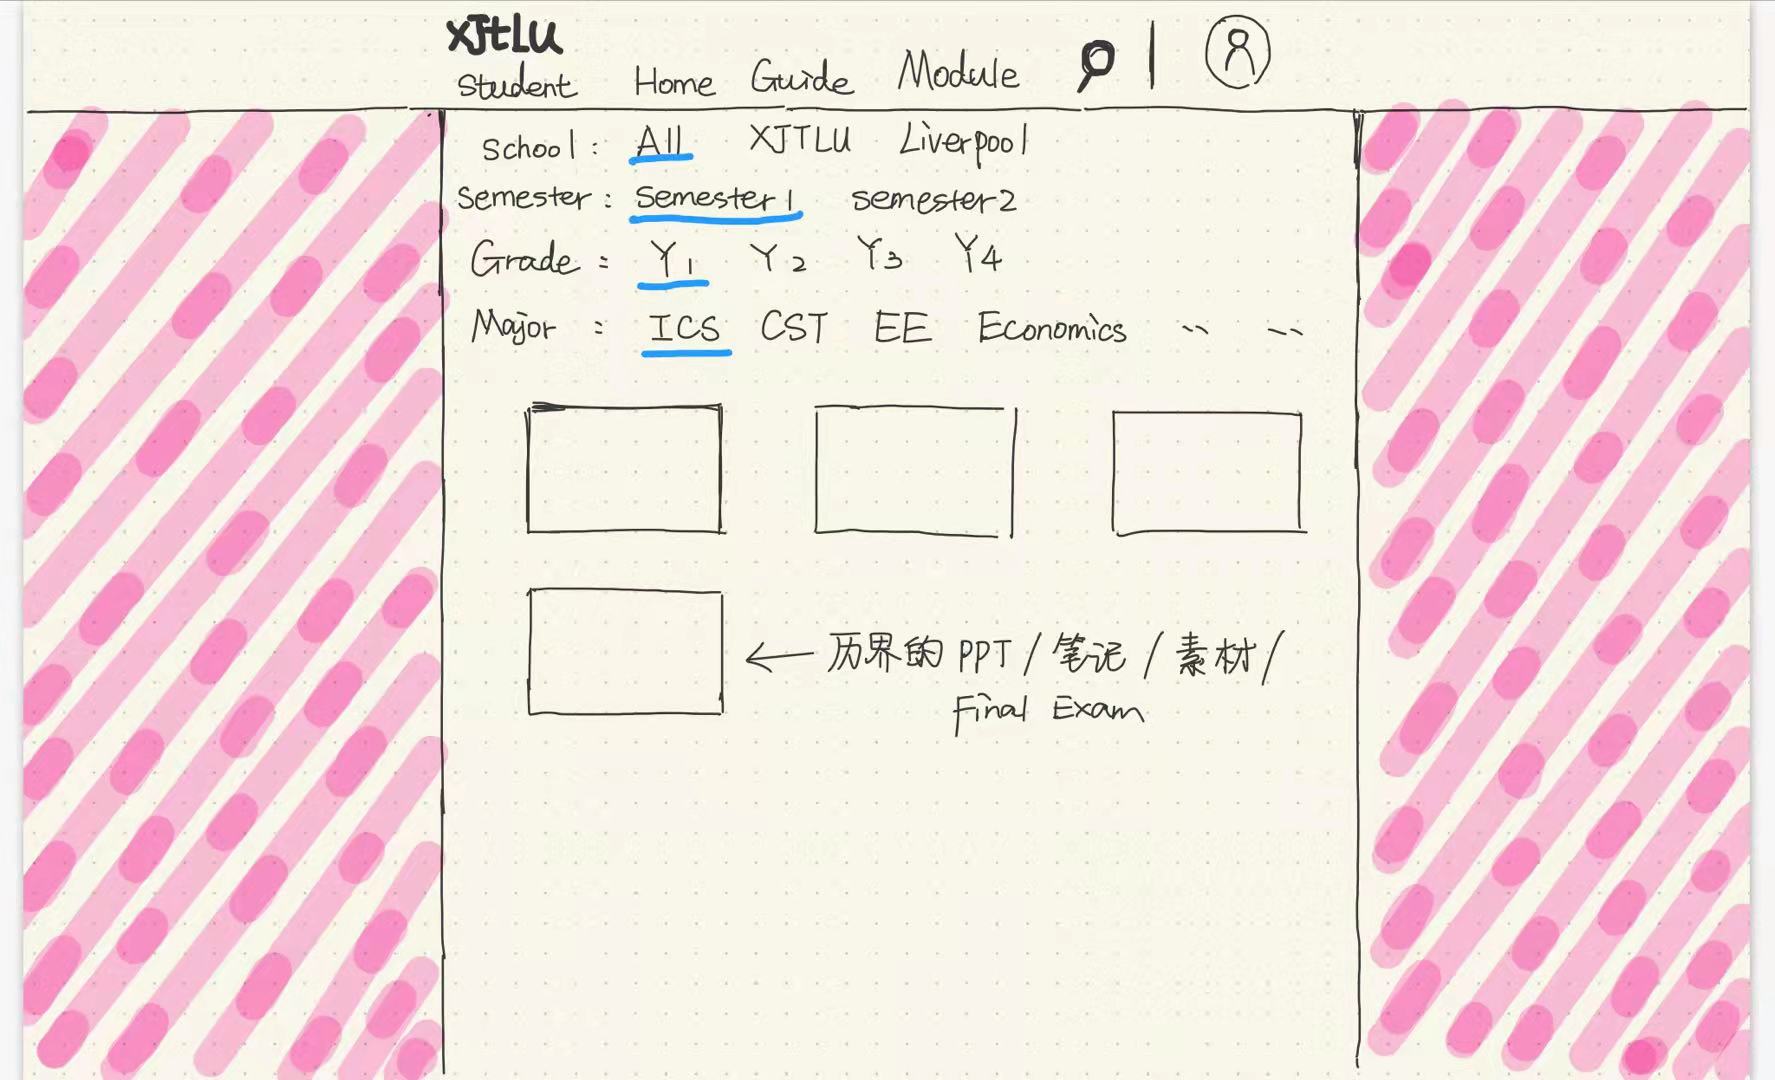 XJtLU
Student Home Guide Module
School: All XJTLU Liverpool
Semester: Semester1 semester2
Grade: Y1 Y2 Y3 Y4
Major: ICS CST EE Economics -- --
← 历界的 PPT / 笔记 / 素材 /
Final Exam